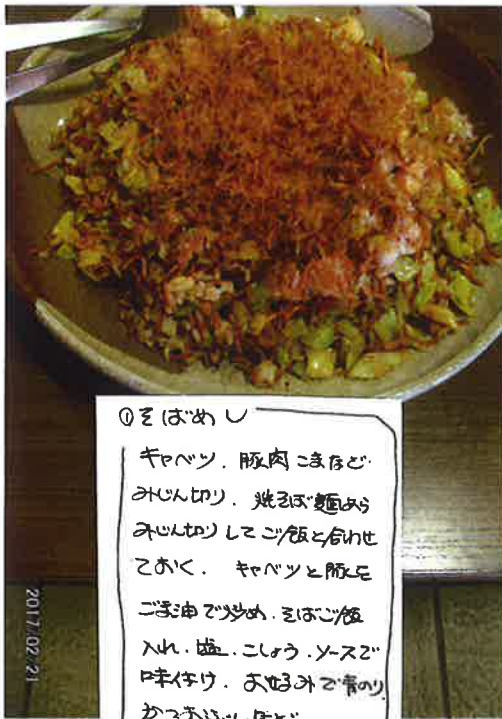 ①そばめし
キャベツ、豚肉こまなど
みじん切り、焼そば麺あら
みじん切りしてご飯と合わせ
ておく、キャベツと豚を
ごま油で炒め、そばご飯
入れ、塩、こしょう、ソースで
味付け、お好みで青のり
かつおぶしなど
2017/02/21